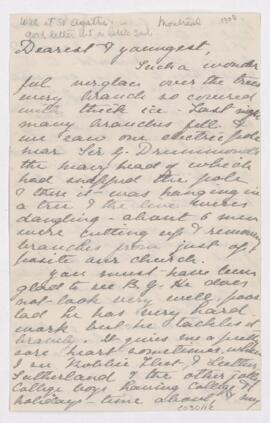 Will at St Agathe;
Montreal 1908
good letter but a little sad.
Dearest & youngest,
Such a wonder
ful verglas over the trees
every branch so covered
with thick ice - Last night
many branches fell &
we saw one electric pole
near Sir G. Drummonds
the heavy head of which
had snapped the pole
& then it was hanging in
a tree & the live wires
dangling - about 6 men
were cutting up & removing
branches from just op
posite our church.
You must have been
glad to see B. G. He does
not look very well, poor
lad he has very hard
work but he tackles it
bravely. It gives me a pretty
sore heart sometimes when
I see Robbie &
Sutherland & the other jolly
College boys having College &
holidays - time about, & my